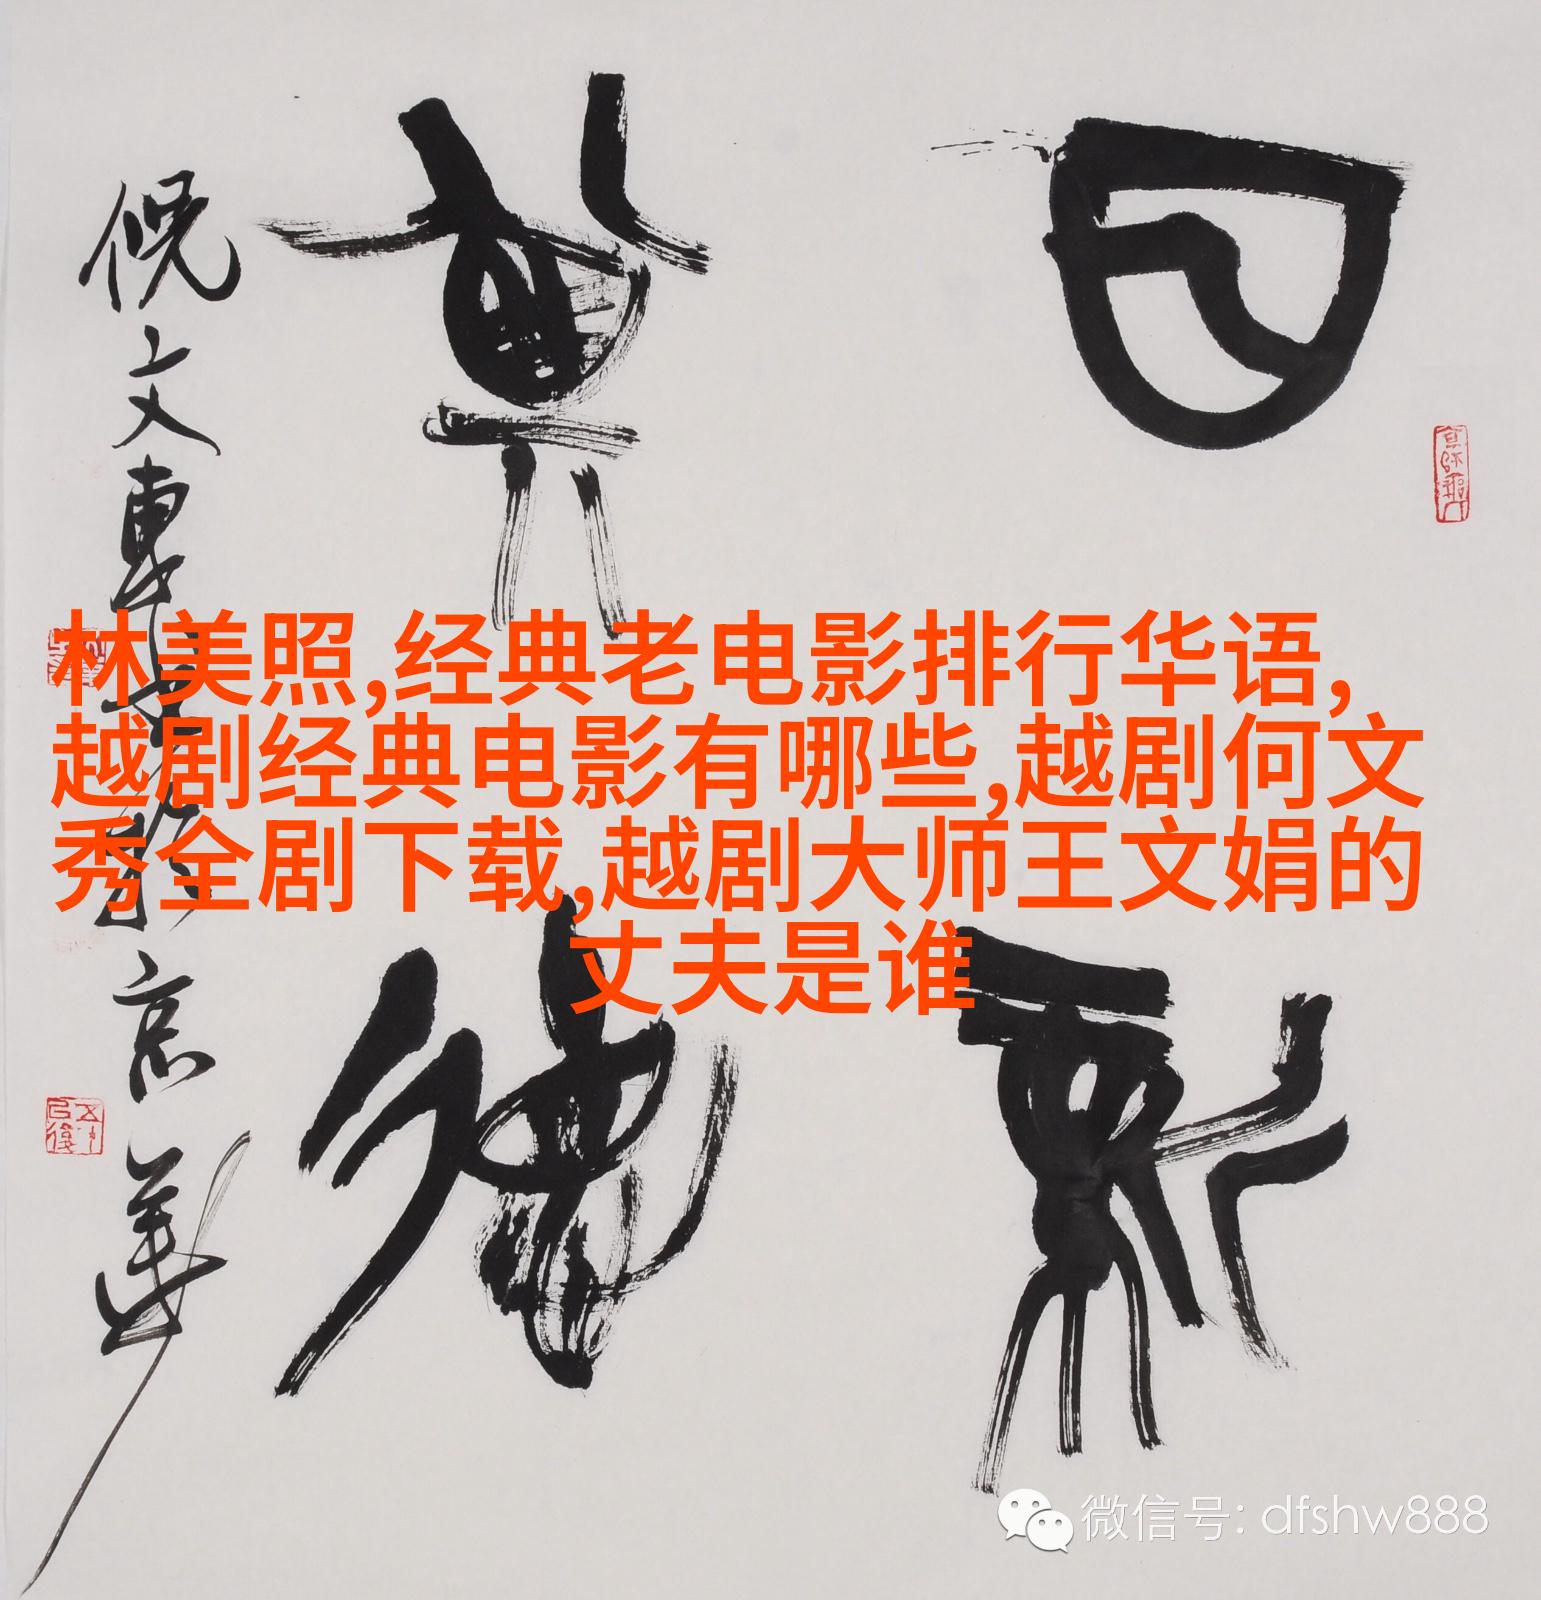 日新
其德
倪文東
京華
林美照,经典老电影排行华语,
越剧经典电影有哪些,越剧何文
秀全剧下载,越剧大师王文娟的
丈夫是谁
微信号: dfshw888